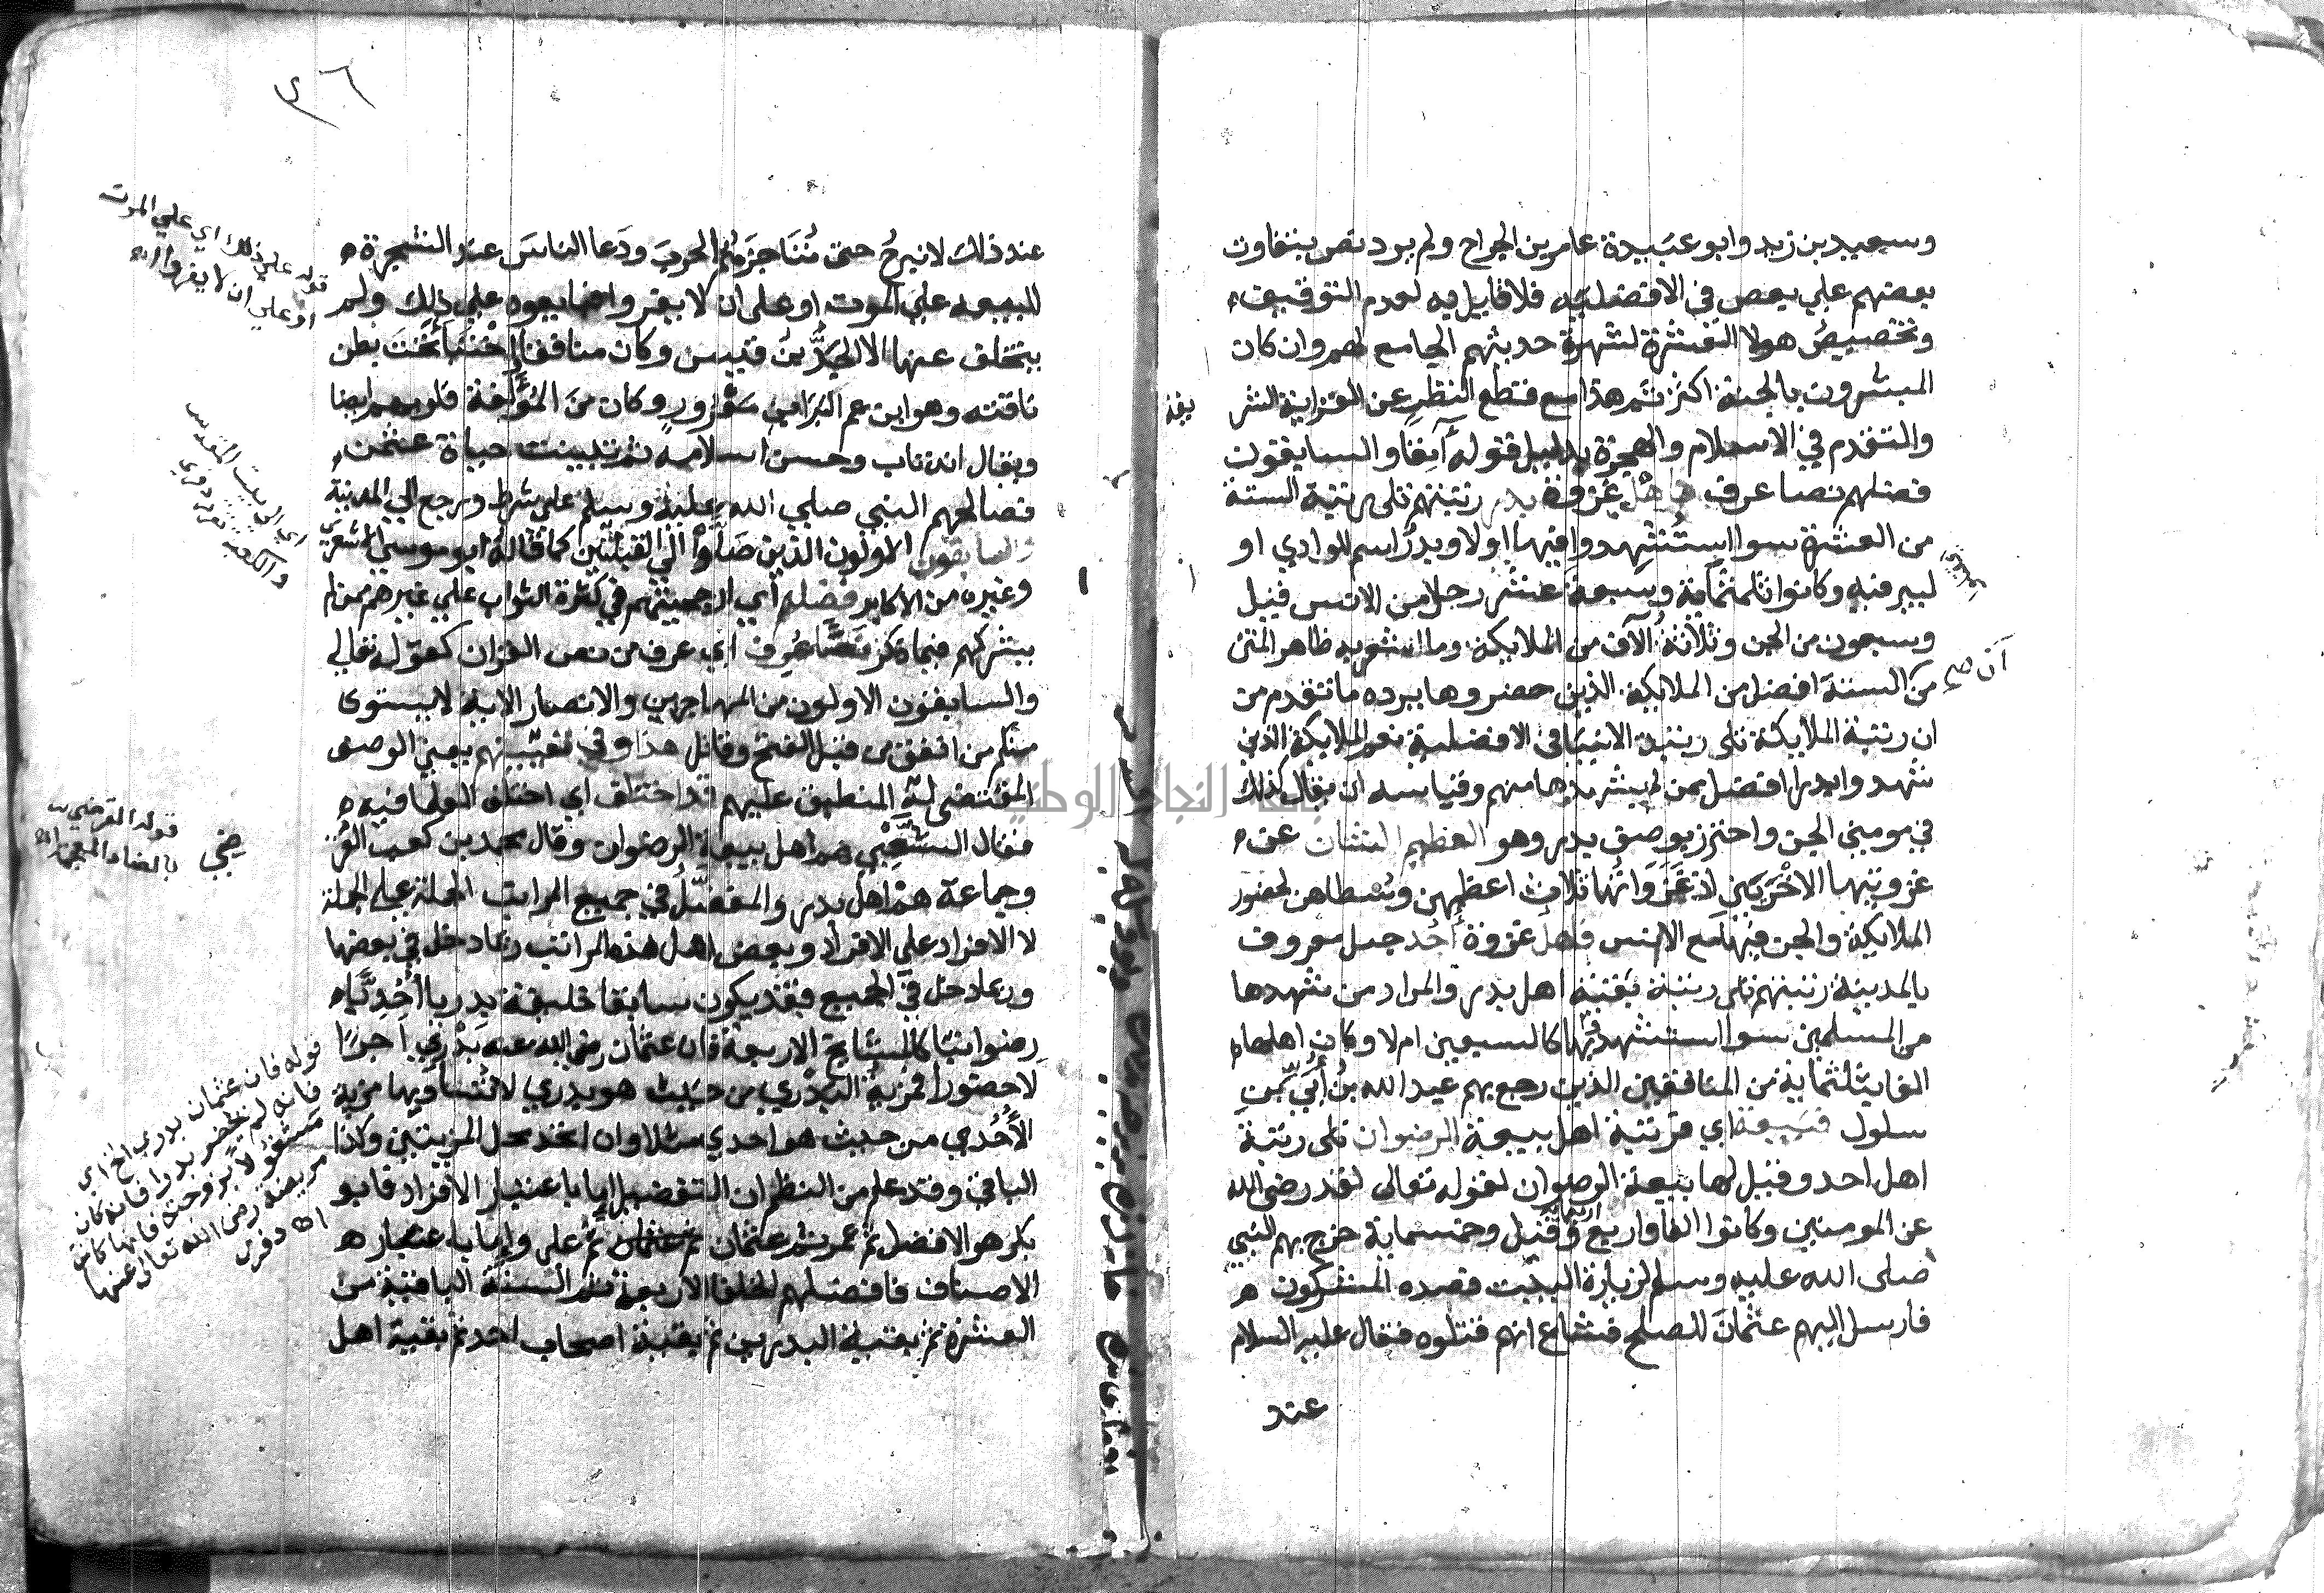 وسعيد بن زيد وابو عبيدة عامر بن الجراح ولم يرد نص بتفاوت
بعضهم علي بعض في الافضلية فلا قايل به لعدم التوقيف
وتخصيص هولا العشرة لشهرة حديثهم الجامع لهم وان كان
المبشرون بالجنة اكثر ثم هذا مع قطع النظر عن القرابة الشر يفة
والتقدم في الاسلام والهجرة بدليل قوله آنفا والسابقون
فضلهم نصا عرف فاهل غزوة بدر رتبتهم تلي رتبة الستة
من العشرة سوا استشهدوا فيها اولا وبدر اسم للوادي او
لبير فيه وكانوا ثلثماية وسبعة عشر رجلا من الانس قيل
وسبعون من الجن وثلاثة آلاف من الملايكة وما اشعر به ظاهر المتن
من ان الستة افضل من الملايكة الذين حضروها يرده ما تقدم من
ان رتبة الملايكة تلي رتبة الانبيا في الافضلية نعم الملايكة الذين
شهدوا بدرا افضل ممن لم يشهدها منهم وقياسه ان يقال كذلك
في مومني الجن واحترز بوصف بدر وهو العظيم الشان عن
غزوتيها الاخريين اذ غزواتها ثلاث اعظمهن وسطاهن لحضور
الملايكة والجن فيها مع الانس فاهل غزوة أحد جبل معروف
بالمدينة رتبتهم تلي رتبة بقية اهل بدر والمراد من شهدها
من المسلمين سوا استشهد فيها كالسبعين ام لا وكان اهلها
الفا يثلثماية من المنافقين الذين رجع بهم عبد الله بن أبي بن
سلول فبيعة اي فرتبة اهل بيعة الرضوان تلي رتبة
اهل احد وقيل لها بيعة الرضوان لقوله تعالى لقد رضي الله
عن المومنين وكانوا الفا واربع اربعماية وقيل وخمسماية خرج بهم النبي
صلى الله عليه وسلم لزيارة البيت فصده المشركون
فارسل اليهم عثمان للصلح فشاع انهم قتلوه فقال عليه السلام
عند
٤٦
عند ذلك لا نبرح حتى نناجزهم الحرب ودعا الناس عند الشجرة
للبيعة علي الموت او على ان لا يفروا فبايعوه علي ذلك ولم
يتخلف عنها الا الجد بن قيس وكان منافقا اختبأ تحت بطن
ناقته وهو ابن عم البرا بن معرور وكان من المؤلفة قلوبهم ايضا
ويقال انه تاب وحسن اسلامه ثم تبينت حياة عثمن
فصالحهم النبي صلي الله عليه وسلم علي شرط ورجع الي المدينة
والسابقون الاولون الذين صلوا الي القبلتين كما قاله ابو موسي الاشعري
وغيره من الاكابر فضلهم أي ارجحيتهم في كثرة الثواب علي غيرهم ممن لم
يشركهم فيما ذكر نصا عرف اي عرف من نص القران كقوله تعالي
والسابقون الاولون من المهاجرين والانصار الاية لا يستوى
منكم من انفق من قبل الفتح وقاتل هذا وفي تعيينهم يعني الوصف
المقتضى لسه المنطبق عليهم قد اختلف اي اختلف العلما فيه
فقال الشعبي هم اهل بيعة الرضوان وقال محمد بن كعب القر
وجماعة هم اهل بدر والمفضل في جميع المراتب الجملة علي الجملة
لا الافراد علي الافراد وبعض اهل هذه المراتب ربما دخل في بعضها
وربما دخل في الجميع فقد يكون سابقا خليفة بدريا أحديا
رضوانيا كالمشايخ الاربعة فان عثمان رضي الله عنه بدري اجرا
لا حضورا فمزية البدري من حيث هو بدري لا تساويها مزية
الأحدي من حيث هو احدي مثلا وان اتحد محل المزيتين وكذا
الباقي وقد علم من النظم ان التفضيل اما باعتبار الافراد فابو
بكر هو الافضل ثم عمر ثم عثمان ثم علي وإما باعتبار
الاصناف فافضلهم الخلفا الاربعة ثم الستة الباقية من
العشرة ثم بقية البدريين ثم بقية اصحاب احد ثم بقية اهل
قوله علي ذلك اي علي الموت
او علي ان لا يفروا اه
اي الي بيت المقدس
والكعبة
ضي
قوله القرضي
بالضاد المعجمة اه
قوله فان عثمان بدري اخ اي
فانه لم يحضر بدرا فانه كان
مشغولا بزوجته فانها كانت
مريضة رضي الله تعالى عنها
اه